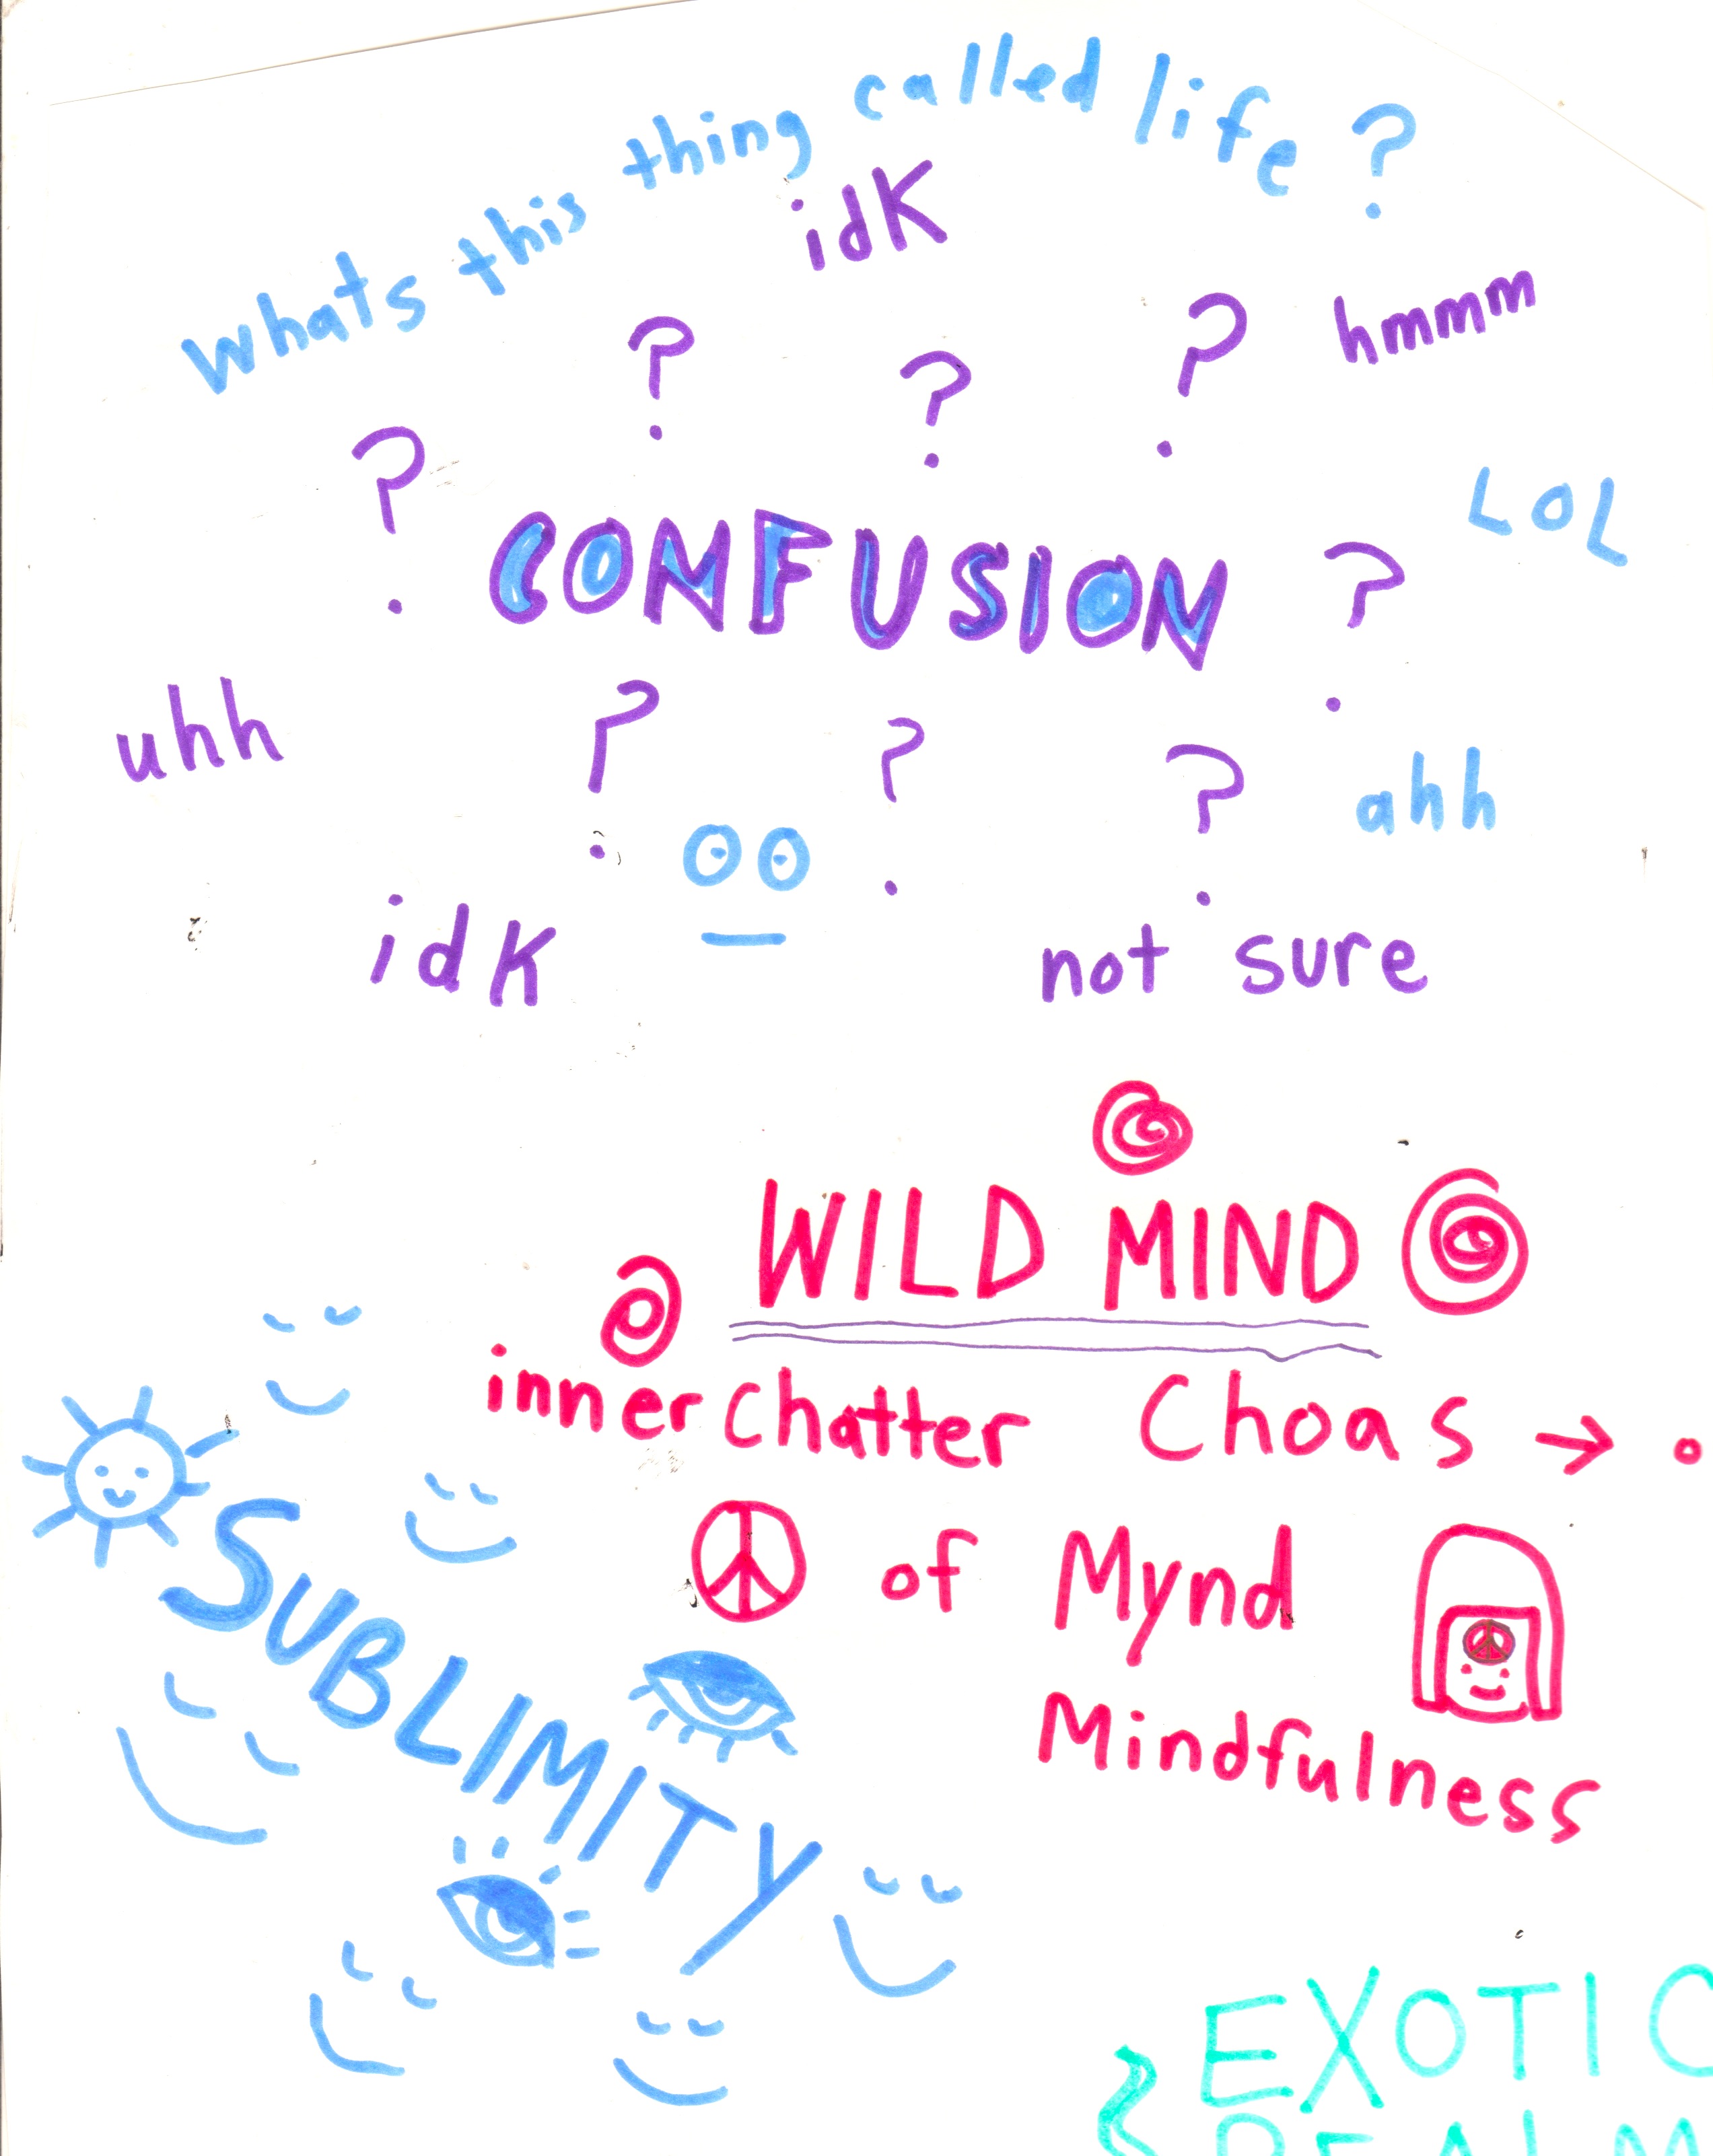 Whats this thing called life?
idk
hmmm
? ? ? ?
LOL
CONFUSION ?
uhh
? ? ?
ahh
idk
not sure
WILD MIND
inner Chatter Choas →
of Mynd
Mindfulness
SUBLIMITY
EXOTIC
REALM